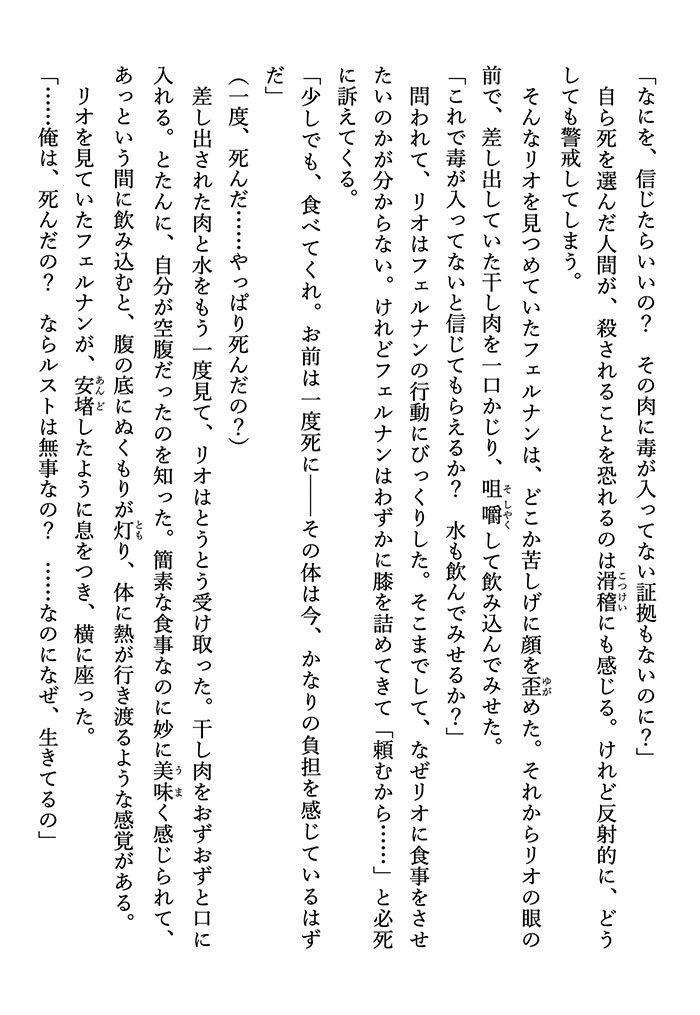 「なにを、信じたらいいの？　その肉に毒が入ってない証拠もないのに？」
　自ら死を選んだ人間が、殺されることを恐れるのは滑稽にも感じる。けれど反射的に、どう
しても警戒してしまう。
　そんなリオを見つめていたフェルナンは、どこか苦しげに顔を歪めた。それからリオの眼の
前で、差し出していた干し肉を一口かじり、咀嚼して飲み込んでみせた。
「これで毒が入ってないと信じてもらえるか？　水も飲んでみせるか？」
　問われて、リオはフェルナンの行動にびっくりした。そこまでして、なぜリオに食事をさせ
たいのかが分からない。けれどフェルナンはわずかに膝を詰めてきて「頼むから……」と必死
に訴えてくる。
「少しでも、食べてくれ。お前は一度死に――その体は今、かなりの負担を感じているはず
だ」
（一度、死んだ……やっぱり死んだの？）
　差し出された肉と水をもう一度見て、リオはとうとう受け取った。干し肉をおずおずと口に
入れる。とたんに、自分が空腹だったのを知った。簡素な食事なのに妙に美味く感じられて、
あっという間に飲み込むと、腹の底にぬくもりが灯り、体に熱が行き渡るような感覚がある。
　リオを見ていたフェルナンが、安堵したように息をつき、横に座った。
「……俺は、死んだの？　ならルストは無事なの？　……なのになぜ、生きてるの」